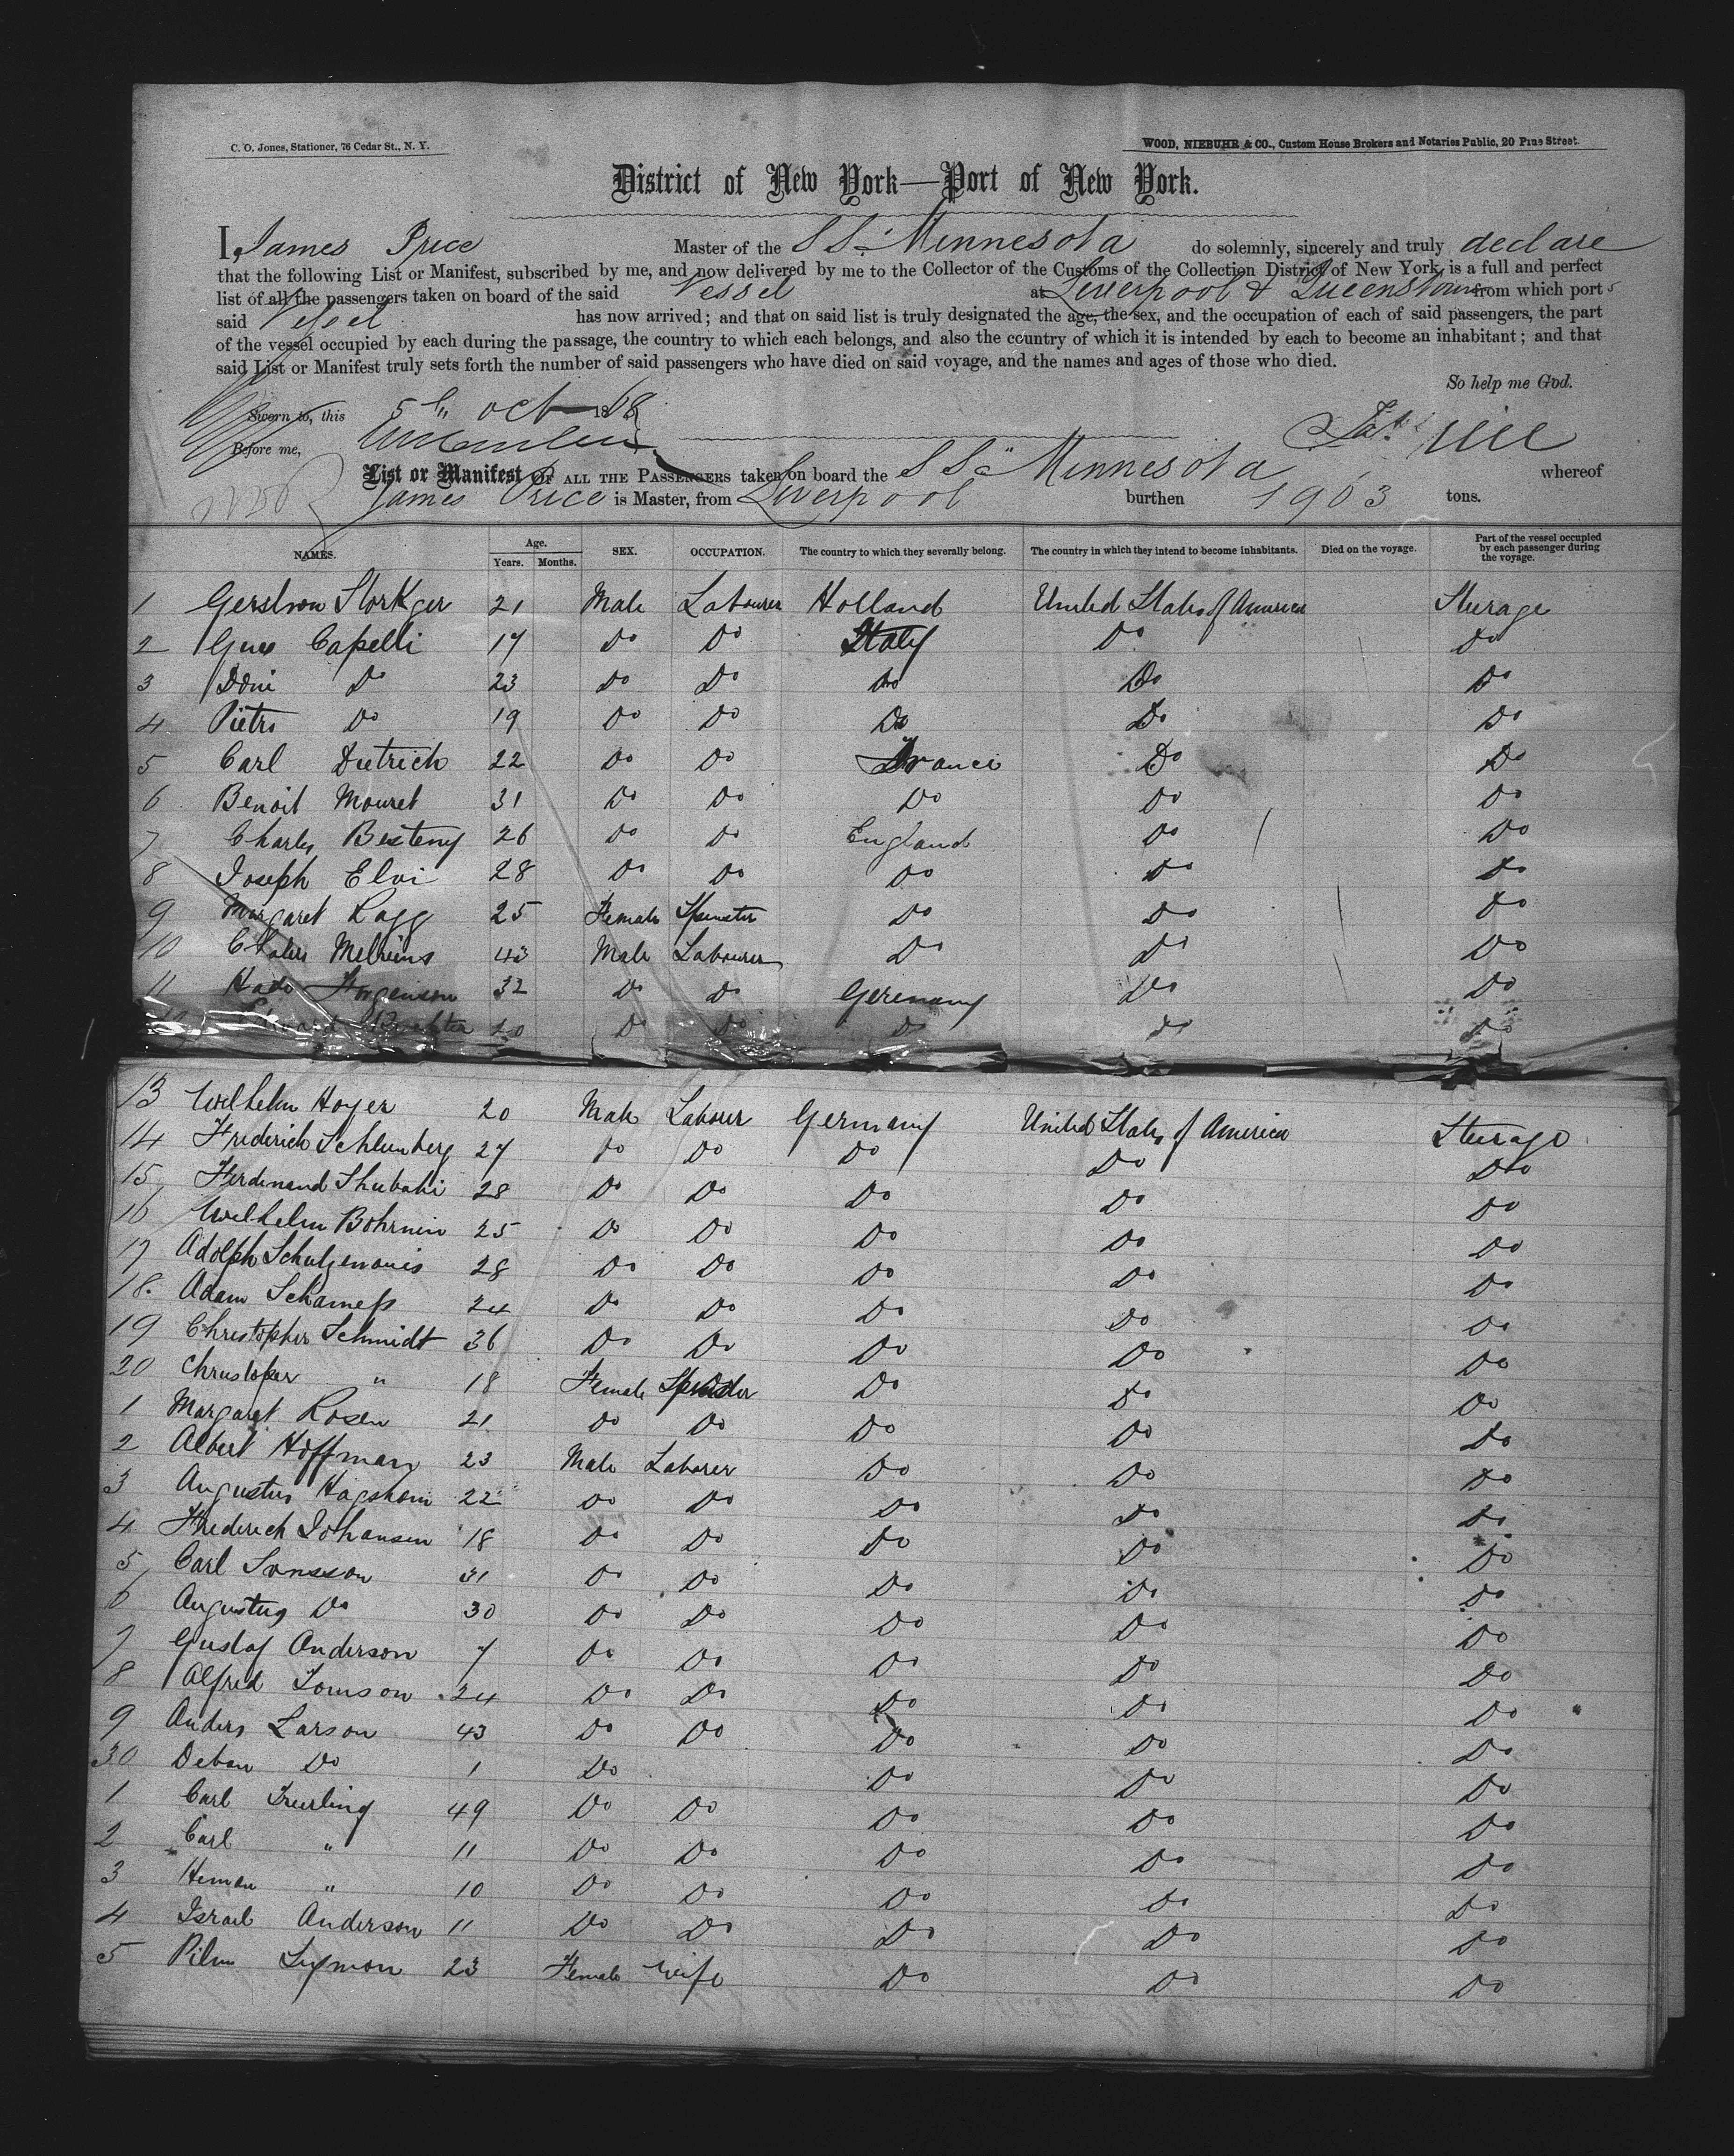 C. O. Jones, Stationer, 76 Cedar St., N. Y.
WOOD, NIEBUHR & CO., Custom House Brokers and Notaries Public, 20 Pine Street.
District of New York—Port of New York.
I, James Price Master of the SS "Minnesota do solemnly, sincerely and truly declare
that the following List or Manifest, subscribed by me, and now delivered by me to the Collector of the Customs of the Collection District of New York, is a full and perfect
list of all the passengers taken on board of the said Vessel at Liverpool & Queenstown from which port s
said Vessel has now arrived; and that on said list is truly designated the age, the sex, and the occupation of each of said passengers, the part
of the vessel occupied by each during the passage, the country to which each belongs, and also the country of which it is intended by each to become an inhabitant; and that
said List or Manifest truly sets forth the number of said passengers who have died on said voyage, and the names and ages of those who died.
So help me God.
Sworn to, this 5th Oct 1868
Before me,
Jas. Price
List or Manifest OF ALL THE PASSENGERS taken on board the SS "Minnesota whereof
James Price is Master, from Liverpool burthen 1963 tons.
NAMES. Age. Years. Months. SEX. OCCUPATION. The country to which they severally belong. The country in which they intend to become inhabitants. Died on the voyage. Part of the vessel occupied by each passenger during the voyage.
1 21 Male Labourer Holland United States of America Steerage
2 Capelli 17 Do Do Italy Do Do
3 Doni Do 23 Do Do Do Do Do
4 Pietro Do 19 Do Do Do Do Do
5 Carl Dietrich 22 Do Do France Do Do
6 Benoit Mouret 31 Do Do Do Do Do
7 Charles Besteny 26 Do Do England Do Do
8 Joseph Elvi 28 Do Do Do Do Do
9 Margaret Ragg 25 Female Spinster Do Do Do
10 43 Male Labourer Do Do Do
11 32 Do Do Germany Do Do
20 Do Do Do Do Do
13 Wilhelm Hoyer 20 Male Labourer Germany United States of America Steerage
14 Frederich Schlumberg 27 Do Do Do Do Do
15 Ferdinand 28 Do Do Do Do Do
16 Wilhelm 25 Do Do Do Do Do
17 Adolph 28 Do Do Do Do Do
18. Adam 24 Do Do Do Do Do
19 Christopher Schmidt 36 Do Do Do Do Do
20 Christoper " 18 Female Spinster Do Do Do
1 Margaret Rosen 21 Do Do Do Do Do
2 Albert Hoffman 23 Male Laborer Do Do Do
3 Augustus 22 Do Do Do Do Do
4 Frederich Johansen 18 Do Do Do Do Do
5 Carl 31 Do Do Do Do Do
6 Augustus Do 30 Do Do Do Do Do
7 Gustaf Anderson 7 Do Do Do Do Do
8 Alfred 24 Do Do Do Do Do
9 Anders Larson 43 Do Do Do Do Do
30 Do 1 Do Do Do Do
1 Carl 49 Do Do Do Do Do
2 Carl " 11 Do Do Do Do Do
3 Heman " 10 Do Do Do Do Do
4 Israel Anderson 11 Do Do Do Do Do
5 23 Female Wife Do Do Do